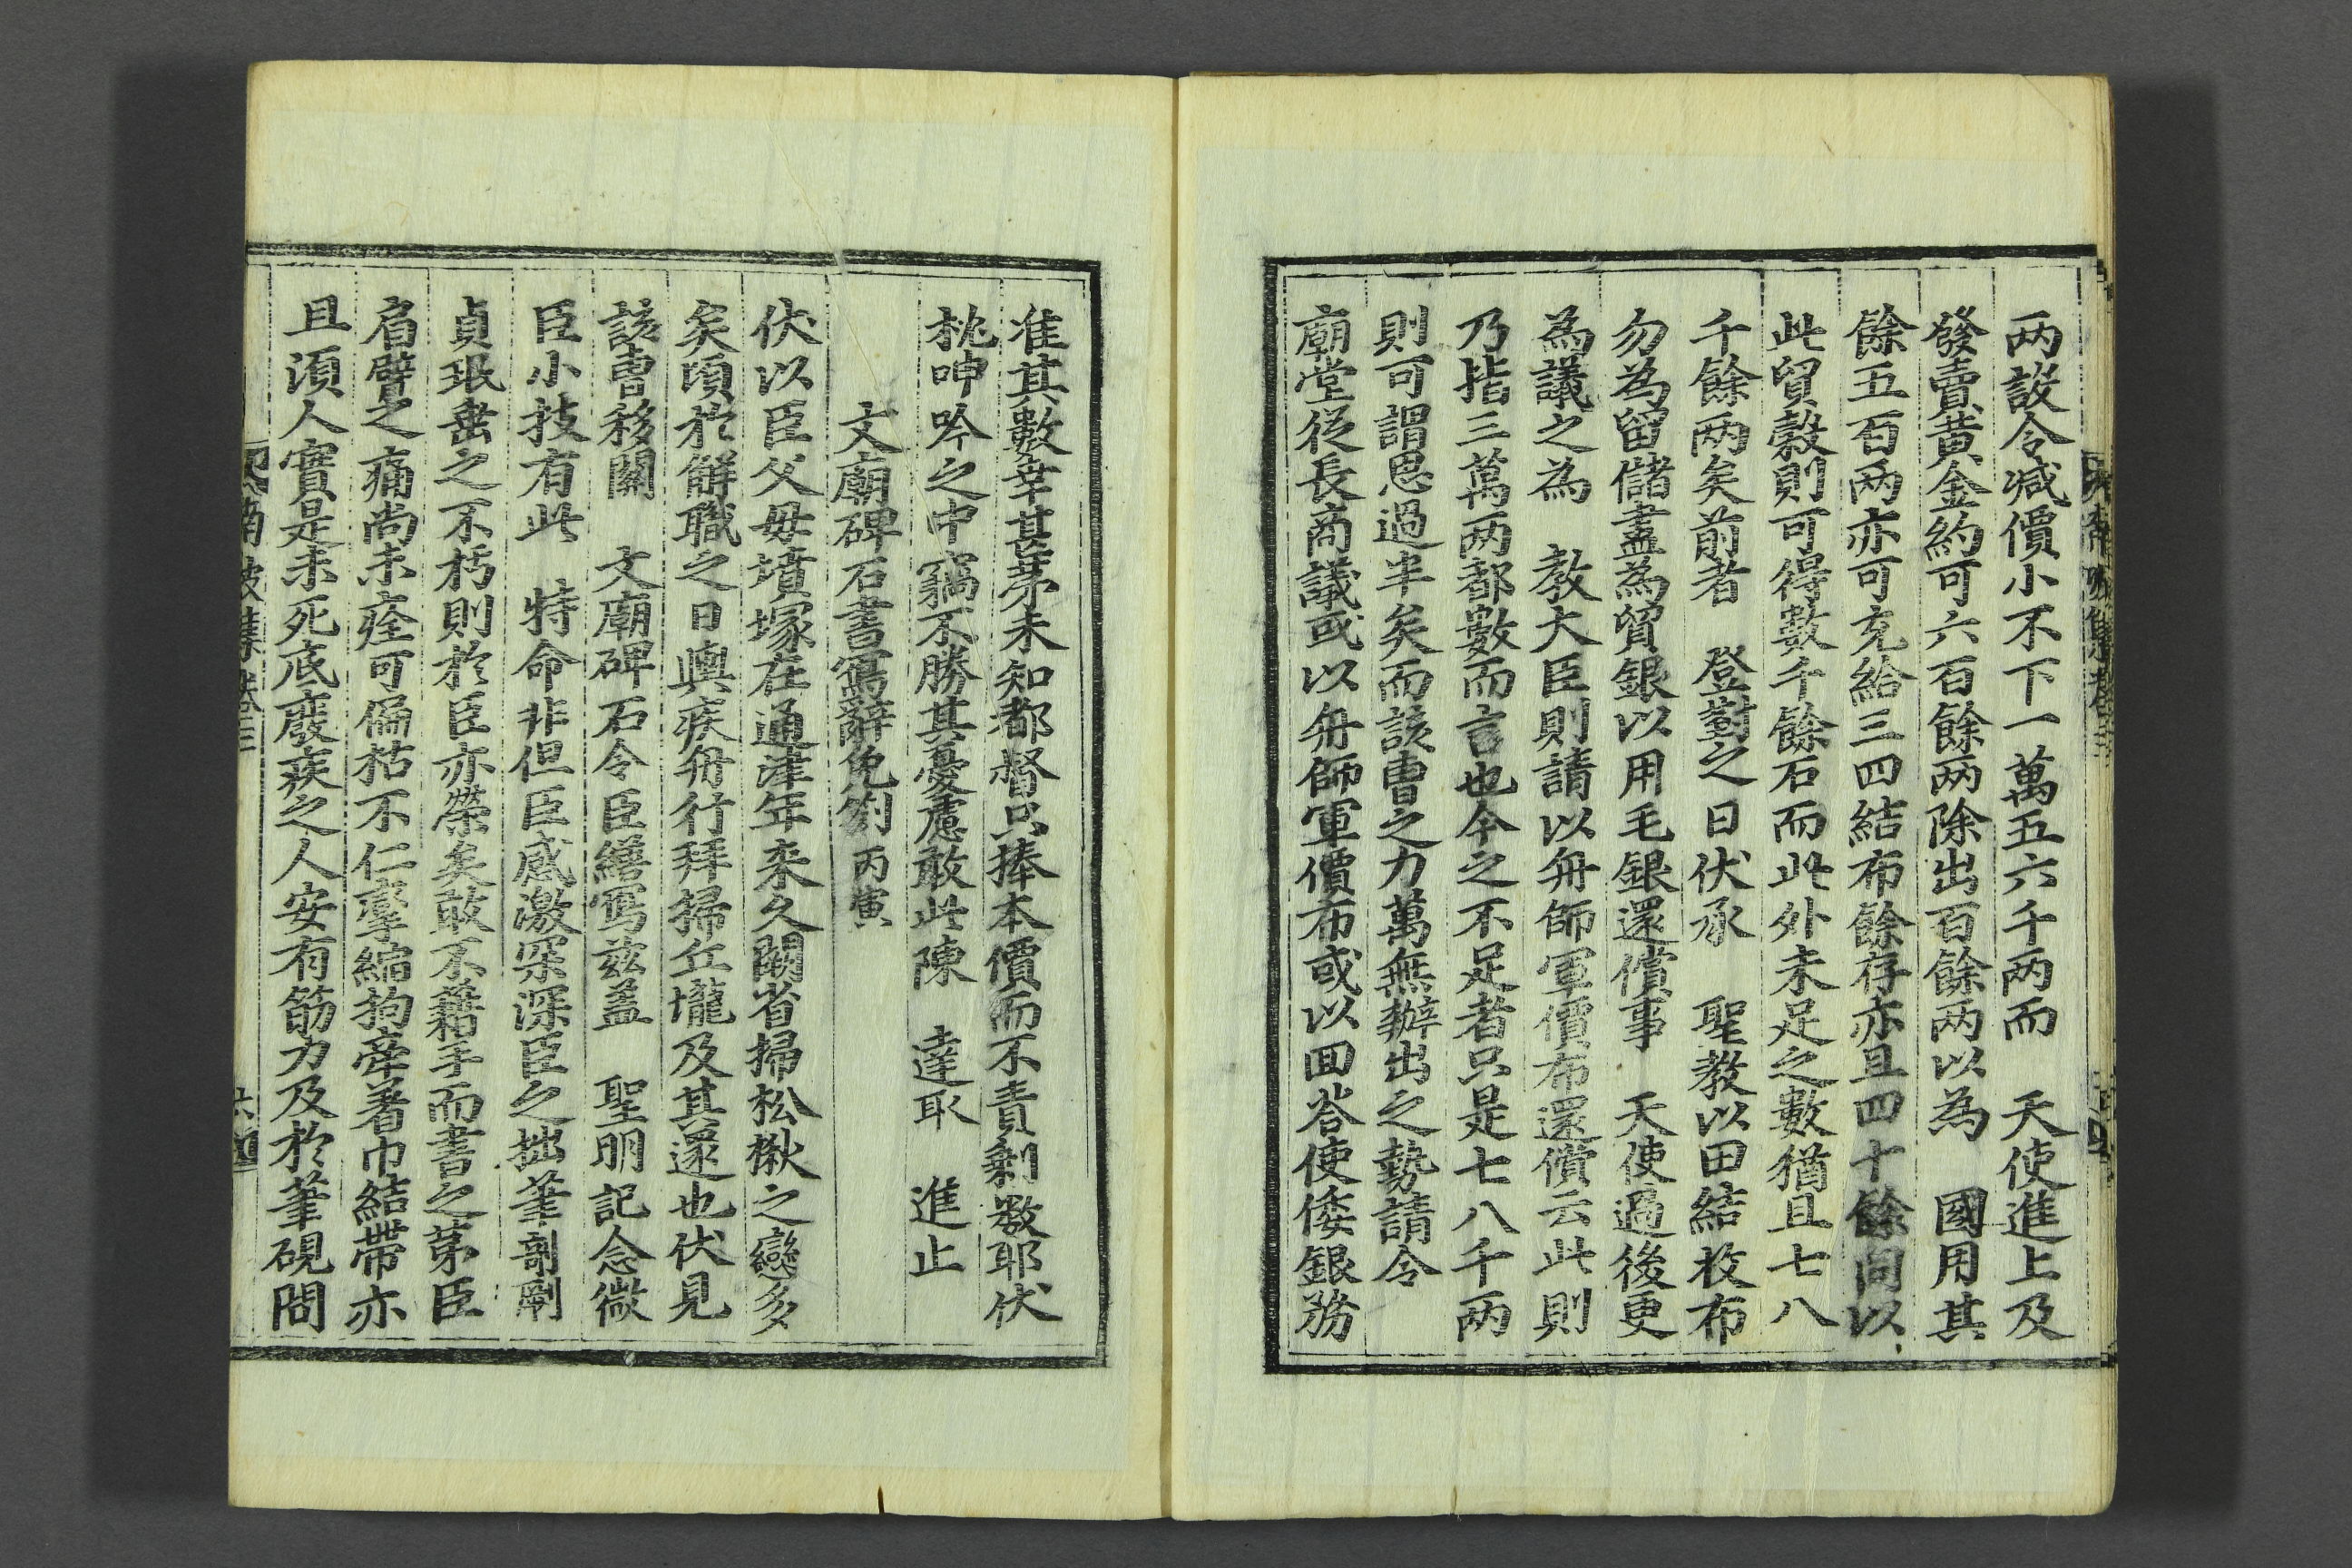 两設令减價小不下一萬五六千两而　天使進上及
發賣黃金約可六百餘两除出百餘两以為　國用其
餘五百两亦可充給三四結布餘存亦且四十餘同以
此貿穀則可得數千餘石而此外未足之數猶且七八
千餘两矣前者　登對之日伏承　聖教以田結收布
勿為留儲盡為貿銀以用毛銀還償事　天使過後更
為議之為　教大臣則請以舟師軍價布還償云此則
乃指三萬两都數而言也今之不足者只是七八千两
則可謂思過半矣而該曹之力萬無辦出之勢請令
廟堂從長商議或以舟師軍價布或以回答使倭銀務
准其數幸甚苐未知都督只捧本價而不責剩數耶伏
枕呻吟之中竊不勝其憂慮敢此陳　達取　進止
文廟碑石書寫辭免劄 丙寅
伏以臣父毋墳塚在通津年来久闕省掃松楸之戀多
矣頃於觧職之日輿疾舟行拜掃丘壠及其還也伏見
該曹移關　文廟碑石令臣繕寫兹盖　聖明記念微
臣小技有此　特命非但臣感激深深臣之拙筆剞劂
貞珉垂之不朽則於臣亦榮矣敢不藉手而書之苐臣
肩臂之痛尚未痊可偏枯不仁攣縮拘牽著巾結帶亦
且湏人實是未死底廢疾之人安有筋力及於筆硯間